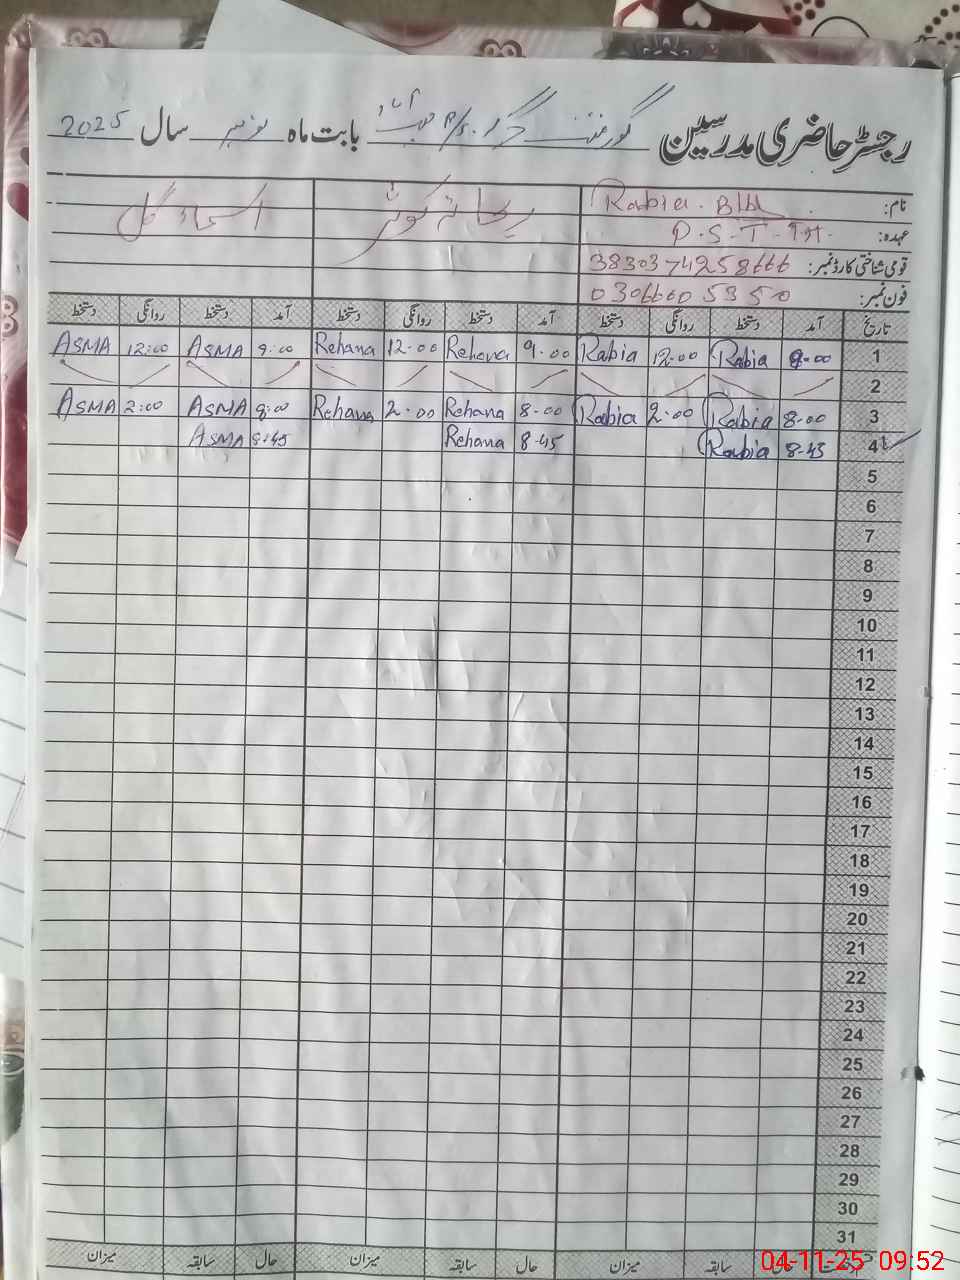 رجسٹر حاضری مدرسین گورنمنٹ گرلز P/S حبیب آباد بابت ماہ نومبر سال 2025
نام: Rabia . Bibi ریحانہ کوثر اسماء گل
عہدہ: P.S.T
قومی شناختی کارڈ نمبر: 3830374258666
فون نمبر: 03066605350
تاریخ آمد دستخط روانگی دستخط آمد دستخط روانگی دستخط آمد دستخط روانگی دستخط
1 9-00 Rabia 12-00 Rabia 9-00 Rehana 12-00 Rehana 9:00 ASMA 12:00 ASMA
2
3 8-00 Rabia 2-00 Rabia 8-00 Rehana 2-00 Rehana 8:00 ASMA 2:00 ASMA
4 8-45 Rabia 8-45 Rehana 8:45 ASMA
5
6
7
8
9
10
11
12
13
14
15
16
17
18
19
20
21
22
23
24
25
26
27
28
29
30
31
حال سابقہ میزان حال سابقہ میزان حال سابقہ میزان
04-11-25 09:52